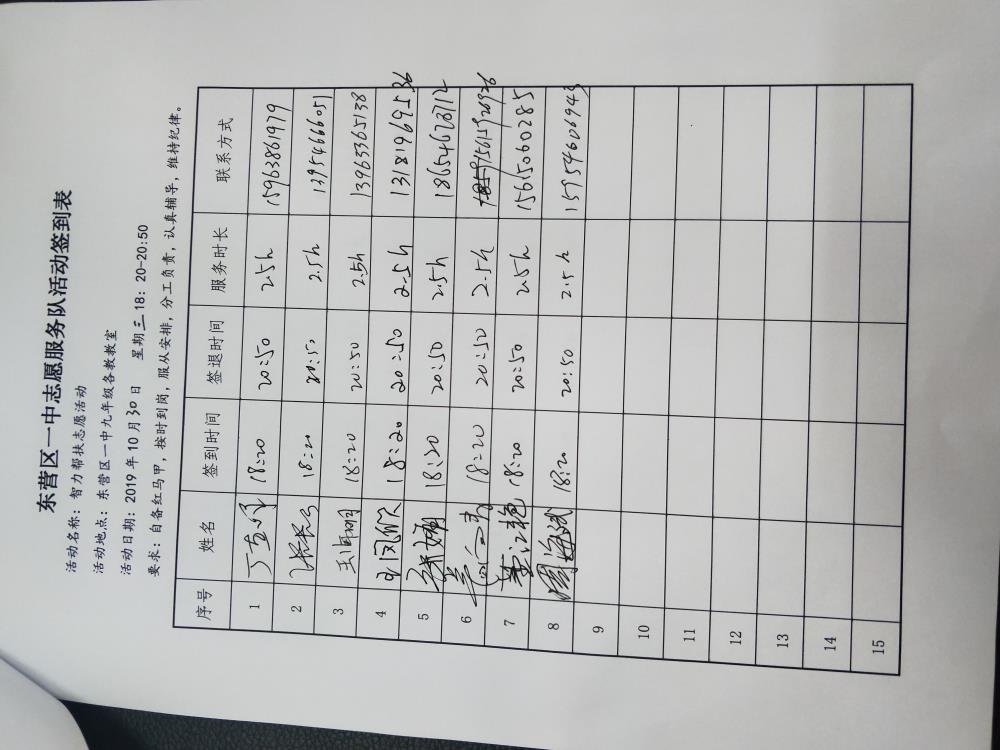 东营区一中志愿服务队活动签到表
活动名称：智力帮扶志愿活动
活动地点：东营区一中九年级各教教室
活动日期：2019年10月30日 星期三 18：20-20:50
要求：自备红马甲，按时到岗，服从安排，分工负责，认真辅导，维持纪律。
序号 姓名 签到时间 签退时间 服务时长 联系方式
1 18:20 20:50 2.5h 15963861979
2 18:20 20:50 2.5h 13954666051
3 18:20 20:50 2.5h 13963365138
4 王凤欣 18:20 20:50 2.5h 13181969536
5 18:20 20:50 2.5h 18654673112
6 18:20 20:50 2.5h
7 董江艳 18:20 20:50 2.5h 15615060285
8 周海斌 18:20 20:50 2.5h 15954606943
9
10
11
12
13
14
15